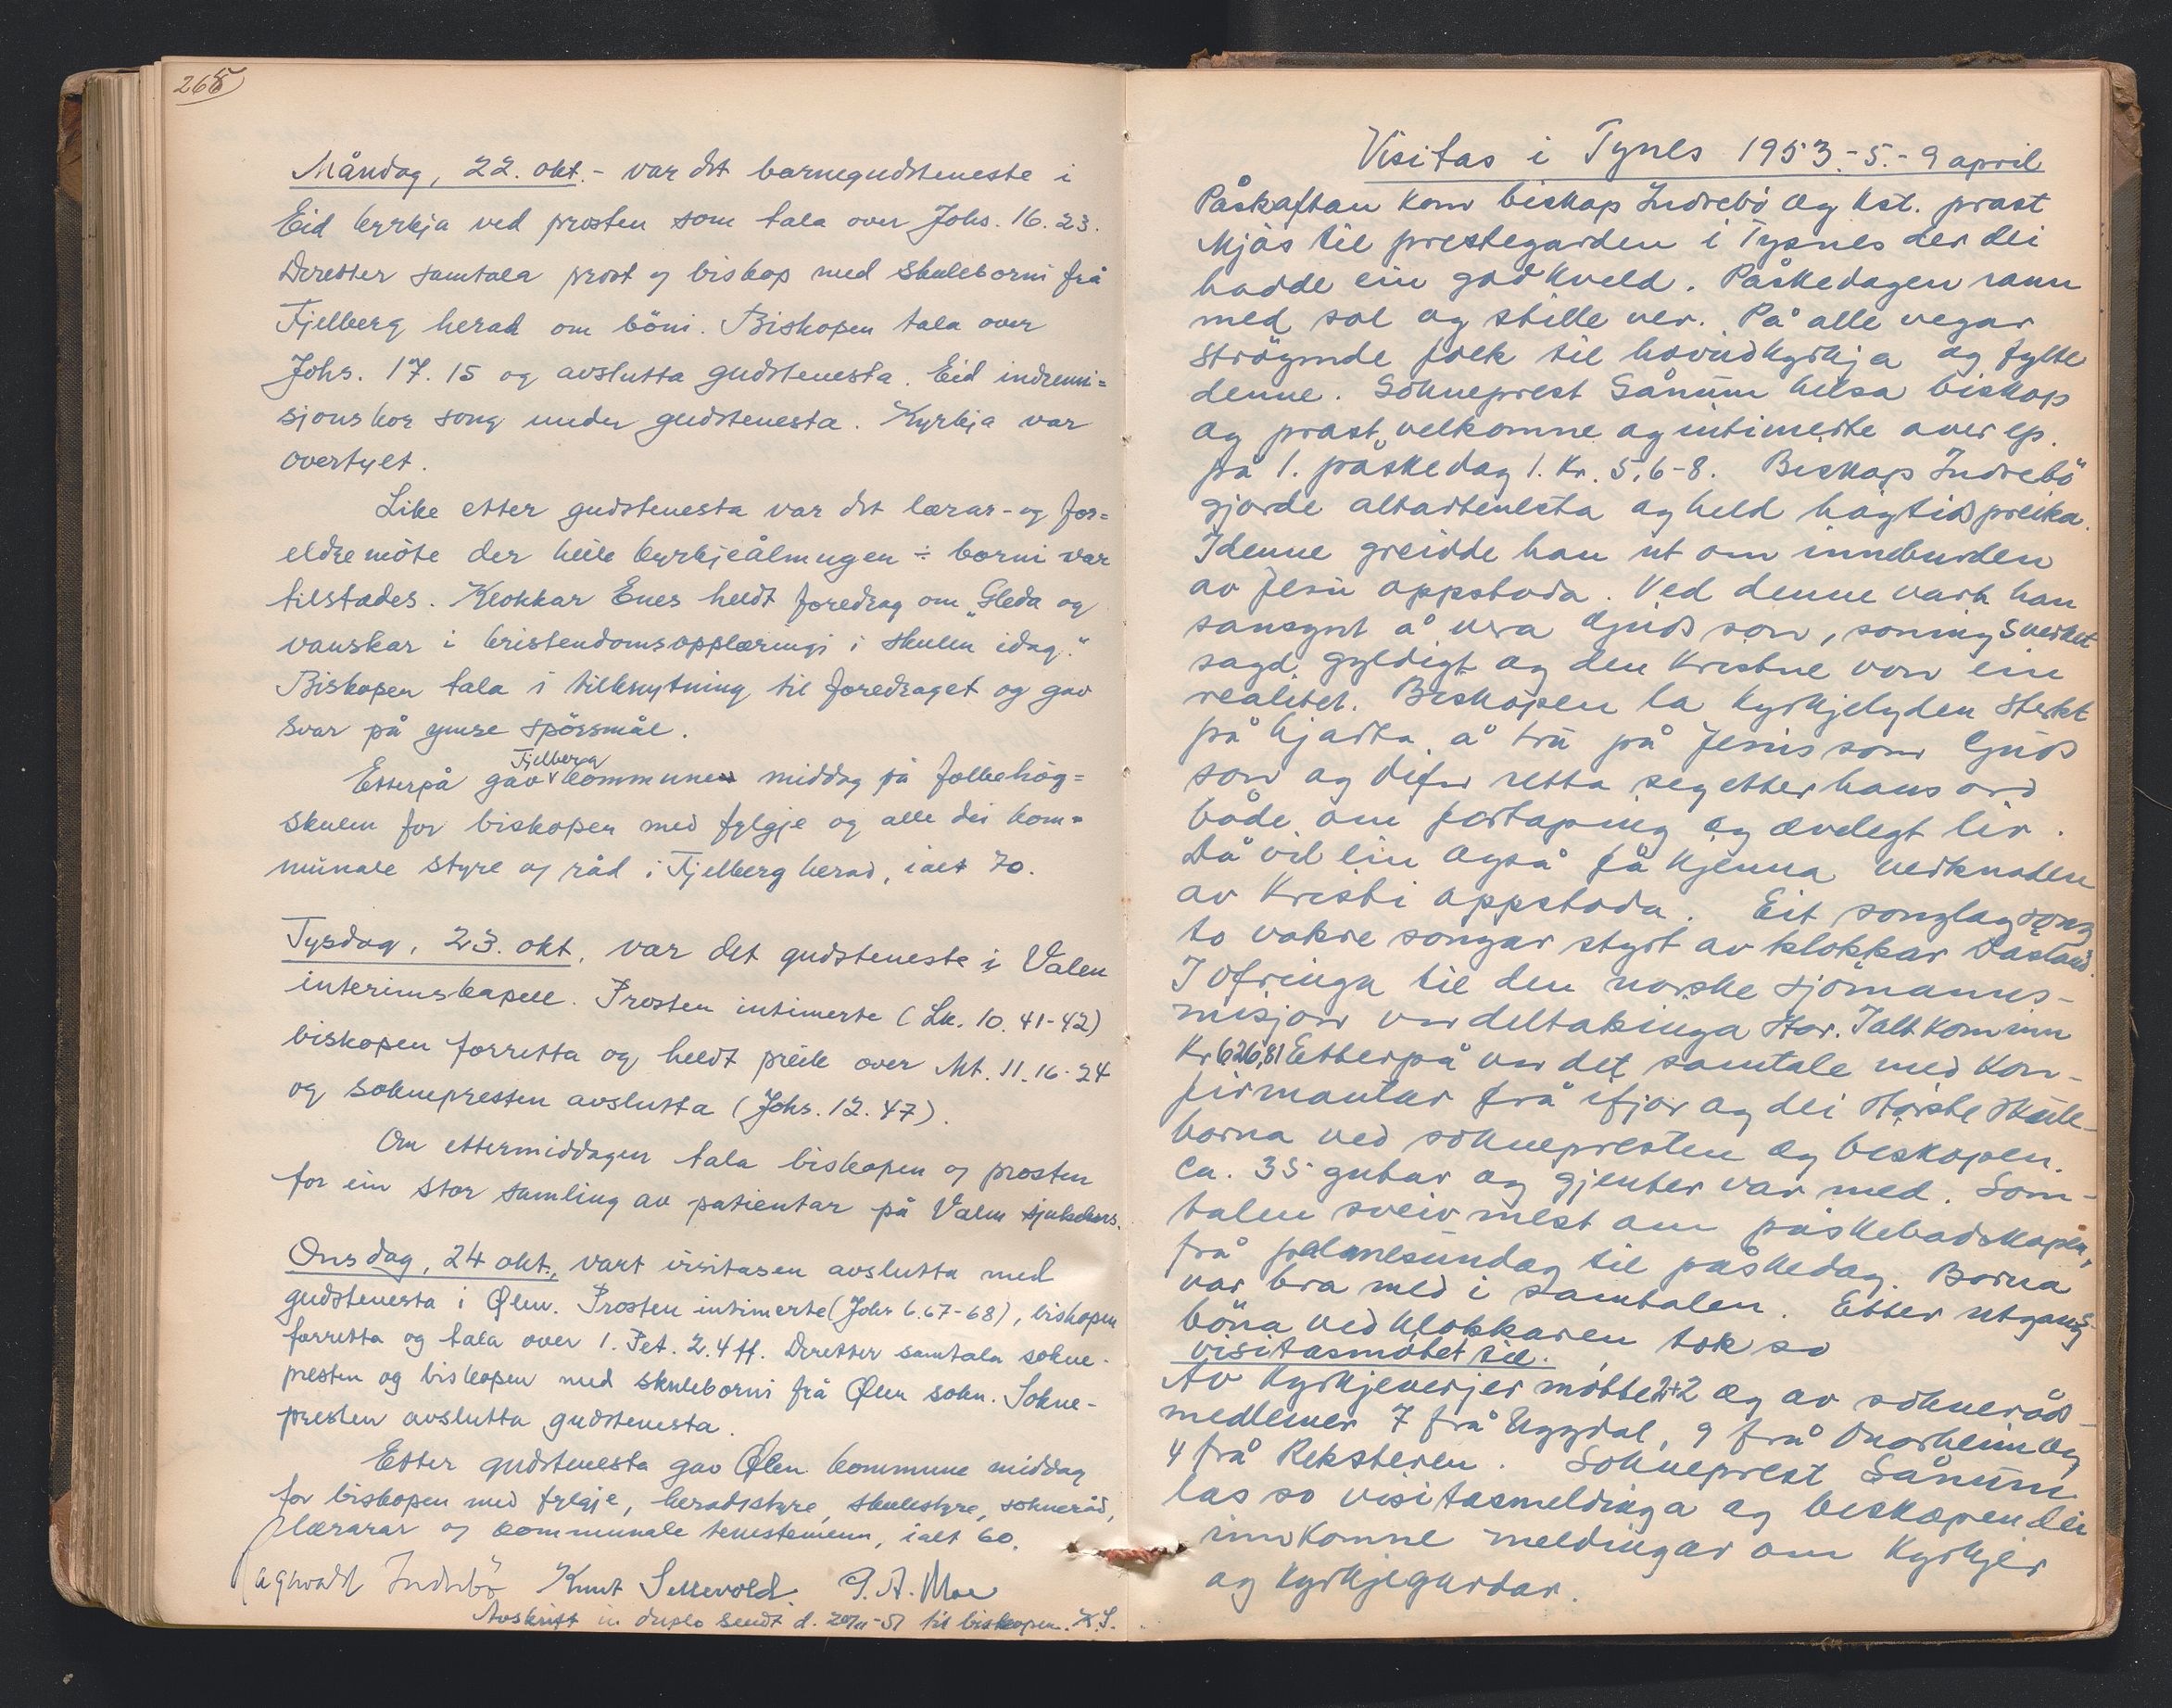 265
Måndag, 22. okt. - var det barnegudsteneste i
Eid kyrkja ved prosten som tala over Johs. 16.23.
Deretter samtala prost og biskop med skuleborni frå
Fjelberg herad om böni. Biskopen tala over
Johs. 17.15 og avslutta gudstenesta. Eid indremi=
sjonskor song under gudstenesta. Kyrkja var
overfylt.
Like etter gudstenesta var det lærar- og for=
eldremöte der heile kyrkjeålmugen ÷ borni var
tilstades. Klokkar Enes heldt foredrag om "Gleda og
vanskar i kristendomsopplæringi i skulen idag."
Biskopen tala i tilknytning til foredraget og gav
svar på ymse spörsmål.
Fjelberg
Etterpå gav kommunen middag på folkehög=
skulen for biskopen med fylgje og alle dei kom=
munale styre og råd i Fjelberg herad, ialt 70.
Tysdag, 23. okt. var det gudsteneste i Valen
interimskapell. Prosten intimerte (Lk. 10. 41-42)
biskopen forretta og heldt preik over Mt. 11. 16-24
og soknepresten avslutta (Johs. 12. 47).
Om ettermiddagen tala biskopen og prosten
for ein stor samling av patientar på Valen sjukehus.
Onsdag, 24 okt., vart visitasen avslutta med
gudstenesta i Ølen. Prosten intimerte (Johs 6.67-68), biskopen
forretta og tala over 1. Pet. 2.4 ff. Deretter samtala sokne-
presten og biskopen med skuleborni frå Ølen sokn. Sokne-
presten avslutta gudstenesta.
Etter gudstenesta gav Ølen kommune middag
for biskopen med fylgje, heradstyre, skulestyre, sokneråd,
lærarar og kommunale tenestemenn, ialt 60.
Ragnvald Indrebö Knut Sellevold. P. A. Moe
Avskrift in duplo sendt d. 20/11-51 til biskopen. K.S.
Visitas i Tynes 1953.-5.-9 april
Påskaftan kom biskop Indrebö og kst. prost
Mjös til prestegarden i Tysnes der dei
hadde ein god kveld. Påskedagen rann
med sol og stille ver. På alle vegar
ströymde folk til hovudkyrkja og fylte
denne. Sokneprest Sånum helsa biskop
og prost velkomne og intimerte over ep.
på 1. påskedag 1. Kr. 5,6-8. Biskop Indrebö
gjorde altartenesta og held högtidspreika.
I denne greidde han ut om inneburden
av Jesu oppstoda. Ved denne vart han
sansynt å vera Guds son, soningsverket
sagd gyldigt og den kristne von ein
realitet. Biskopen la kyrkjelyden sterkt
på hjarta å tru på Jesus som Guds
son og difor retta seg etter hans ord
både om fortaping og ævelegt liv.
Då vil ein også få kjenna verknaden
av Kristi oppstoda. Eit songlag song
to vakre songar styrt av klokkar Dåsland.
I ofringa til den norske sjömanns-
misjon var deltakinga stor. Ialt kom inn
Kr 626,81 Etterpå var det samtale med kon-
firmantar frå ifjor og dei störste skule-
borna ved soknepresten og biskopen.
Ca. 35 gutar og gjenter var med. Sam-
talen sveiv mest om påskebodskapen,
frå palmesundag til påskedag. Borna
var bra med i samtalen. Etter utgangs-
böna ved klokkaren tok so
visitasmötet til.
Av kyrkjeverjer mötte 2+2 og av sokneråds-
medlemer 7 frå Uggdal, 9 frå Onarheim og
4 frå Reksteren. Sokneprest Sånum
las so visitasmeldinga og biskopen dei
innkomne meldingar om kyrkjer
og kyrkjegardar.